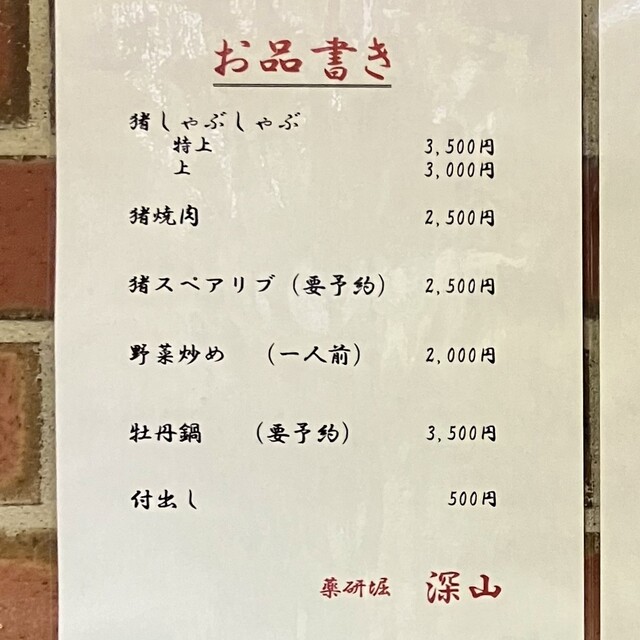 お品書き
猪しゃぶしゃぶ
特上 3,500円
上 3,000円
猪焼肉 2,500円
猪スペアリブ（要予約） 2,500円
野菜炒め （一人前） 2,000円
牡丹鍋 （要予約） 3,500円
付出し 500円
薬研堀 深山